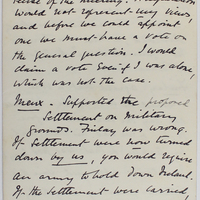 sense of the meeting. A resolution
would not represent my views,
and before we could appoint
one we must have a vote on
the general question. I would
claim a vote even if I was alone,
which was not the case.
Meux. Supported the proposed
Settlement on Military
Grounds. Finlay was wrong.
If Settlement were now turned
down by us, you would require
an army to hold down Ireland.
If the Settlement were carried,